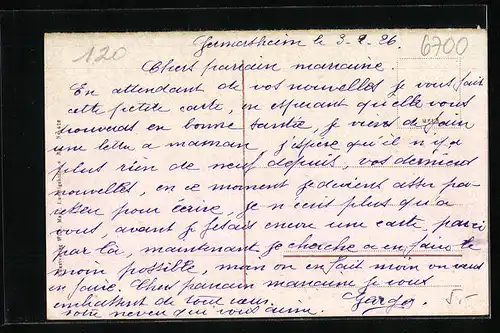 120
Germersheim le 3-9-26.
6700
Chers parrain marraine.
En attendant de vos nouvelles je vous fait
cette petite carte, en espérant qu'elle vous
trouveras en bonne santée, je viens de fair
une lettre a maman, j'espère qu'il n'y a
plus rien de neuf depuis, vos dernieres
nouvelles, en ce moment je deviens assez pa-
pour écrire, je n'ecrit plus qu'a
vous, avant je fesais encore une carte, parci
par la, maintenant je cherche a en faire le
moin possible, moin on en fait moin on veus
en faire. Chers parrain marraine je vous
embrassent de tout cœur.
votre neveu qui vous aime.
5.-